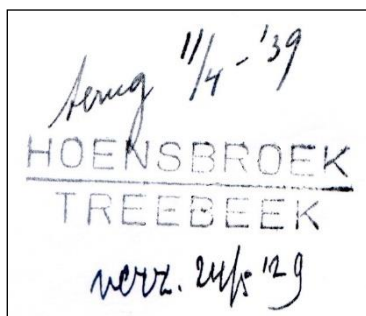 terug 11/4 - '39
HOENSBROEK
TREEBEEK
verz. 24/5 '29